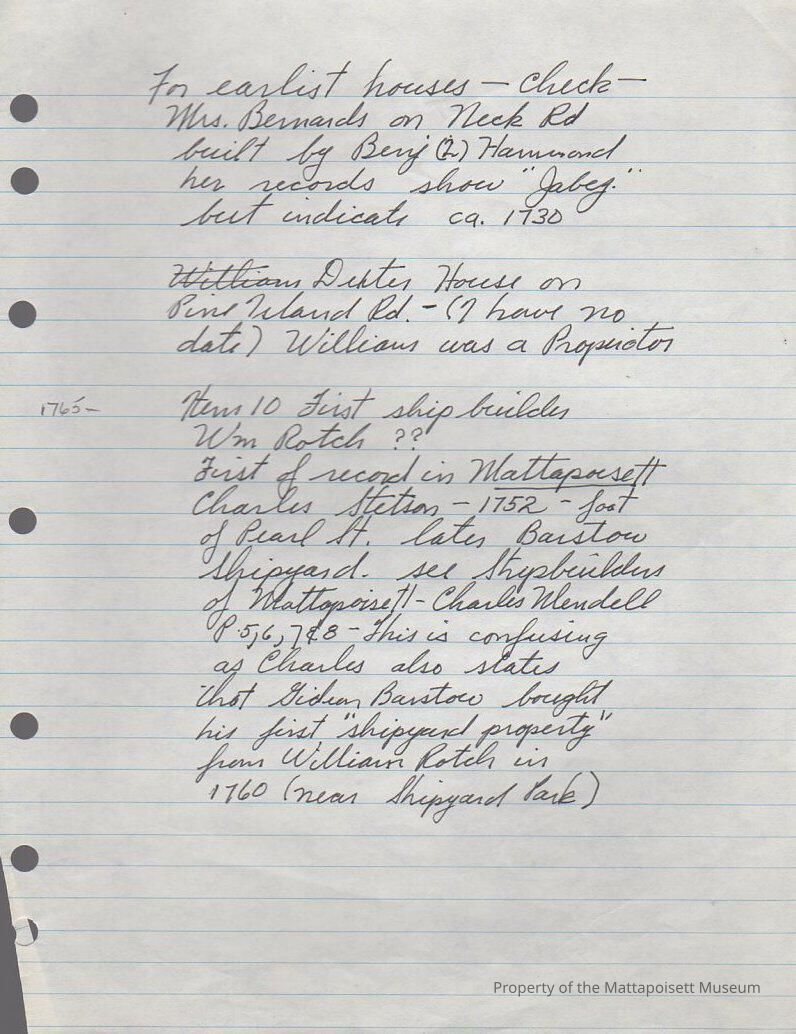 For earlist houses - Check -
Mrs. Bernards on Neck Rd
built by Benj (2) Hammond
her records show "Jabez."
but indicate ca. 1730
William Dexter House on
Pine Island Rd. - (I have no
date) William was a Proprietor
1765- Item 10 First ship builder
Wm Rotch ??
First of record in Mattapoisett
Charles Stetson - 1752 - foot
of Pearl St. later Barstow
Shipyard. see Shipbuilders
of Mattapoisett - Charles Mendell
P. 5, 6, 7 & 8 - This is confusing
as Charles also states
that Gideon Barstow bought
his first "shipyard property"
from William Rotch in
1760 (near Shipyard Park)
Property of the Mattapoisett Museum